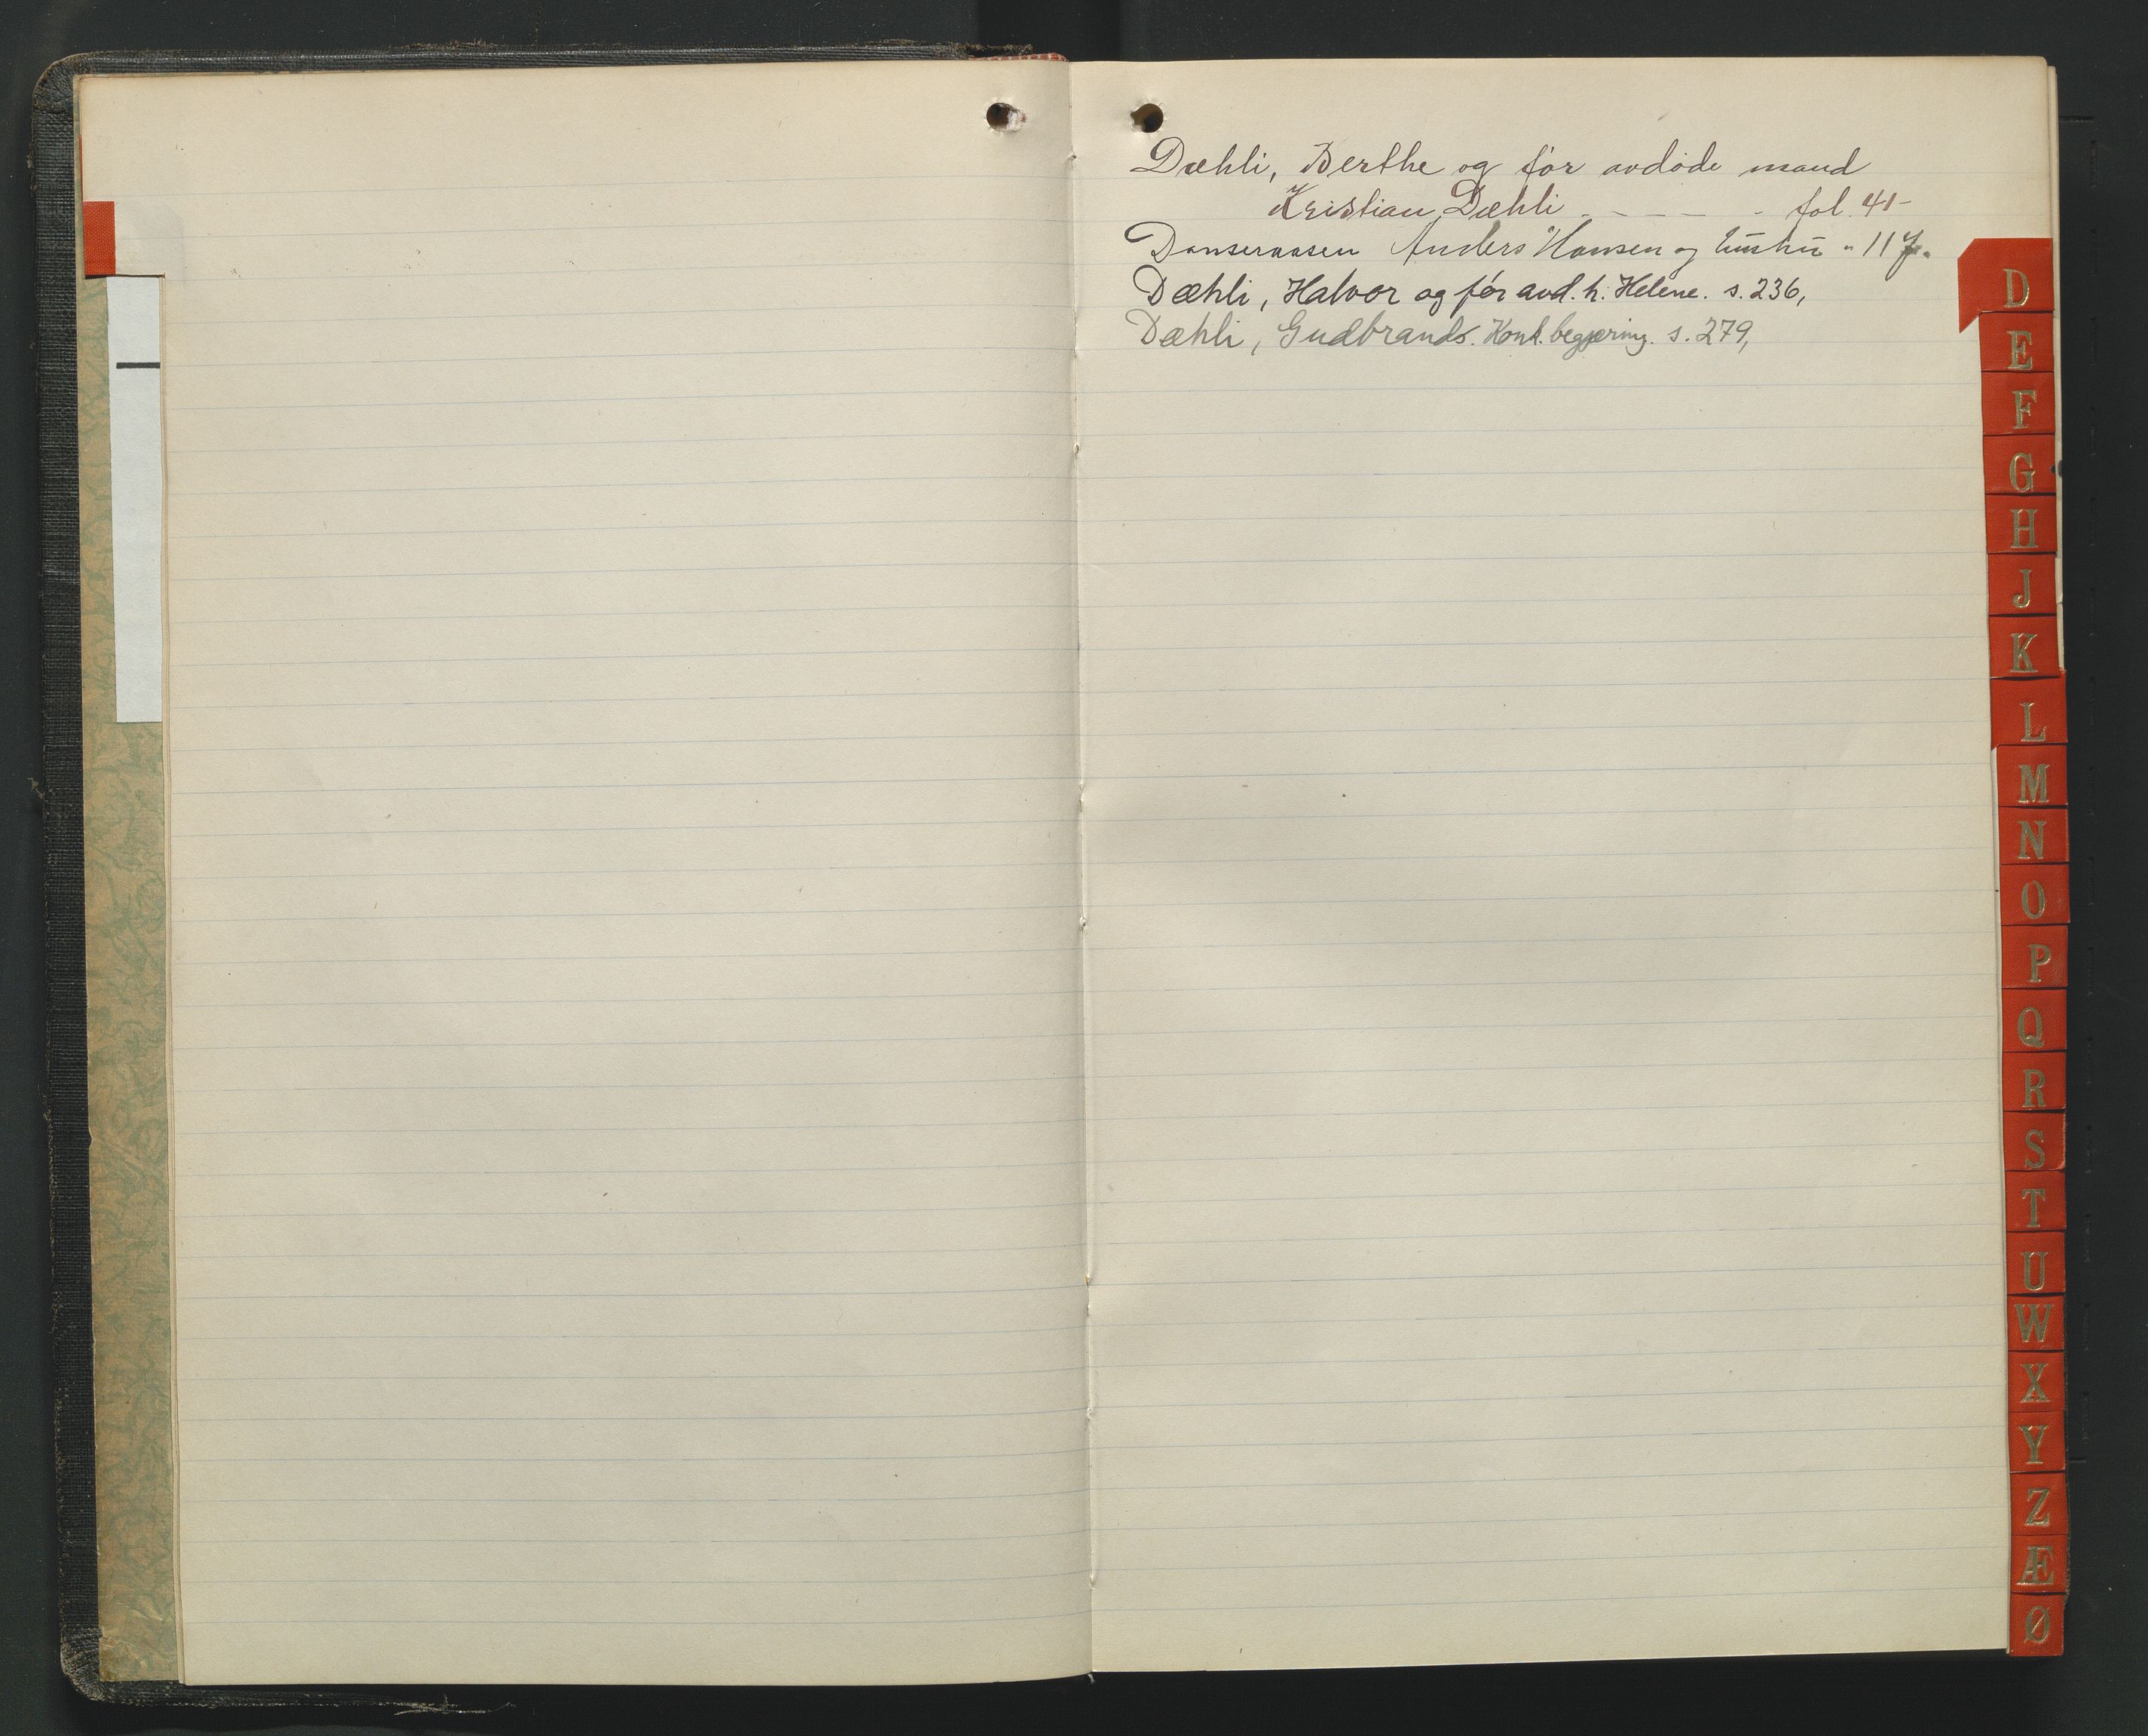 Dæhli, Berthe og før avdøde mand
Kristian Dæhli - - - - - fol. 41-
Danseraasen Anders Hansen og hustru " 117.
Dæhli, Halvor og før avd. h. Helene. s. 236,
Dæhli, Gudbrands. Konk. begjæring. s. 279,
D
E
F
G
H
J
K
L
M
N
O
P
Q
R
S
T
U
W
X
Y
Z
Æ
Ø